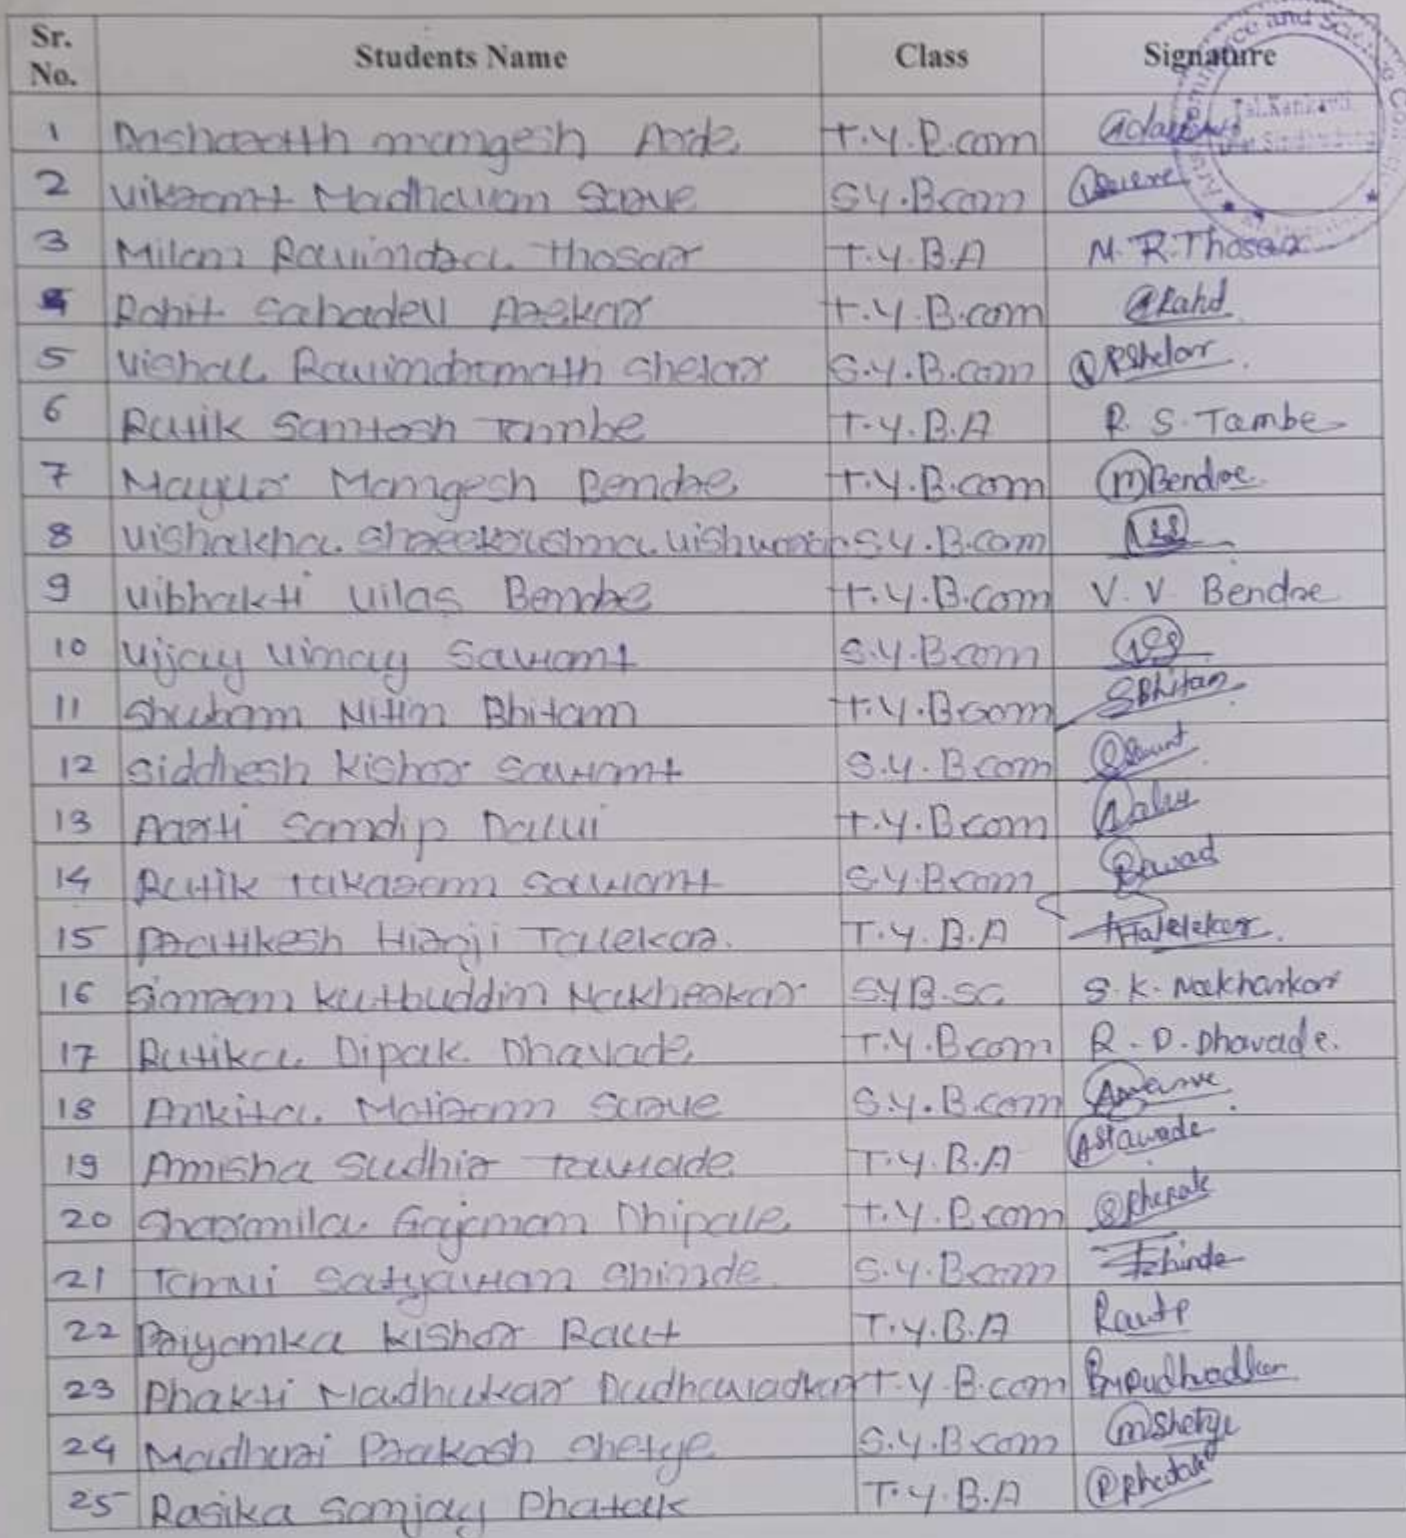 Sr. No. Students Name Class Signature
1 Dasharath mangesh T.Y.B.com
2 Vikrant Madhavan Sarve SY.Bcom
3 Milan Ravindra Thosar T.Y.B.A M.R.Thosar
4 Rohit Sahadev Arekar T.Y.B.com
5 Vishal Ravindranath Shelar S.Y.B.com RShelar
6 Rutik Santosh Tambe T.Y.B.A R.S.Tambe
7 Mayur Mangesh Bendre T.Y.B.com MBendre
8 Vishakha Shreekrushna SY.B.com
9 Vibhakti Vilas Bendre T.Y.B.com V.V Bendre
10 Vijay Vinay Sawant S.Y.Bcom
11 Shubam Nitin Bhitam T.Y.Bcom SBhitam
12 Siddhesh Kishor Sawant S.Y.Bcom
13 Aarti Sandip Dalvi T.Y.Bcom
14 Rutik Tukaram Sawant S.Y.Bcom
15 Prutikesh Hirji Talekar. T.Y.B.A
16 Simran Kutbuddin SYB.Sc S.K.
17 Rutika Dipak Dhavade T.Y.Bcom R.D.Dhavade.
18 Ankita Motiram Sarve S.Y.B.com
19 Amisha Sudhir Tawade T.Y.B.A AsTawade
20 Sharmila Gajanan Dhipale T.Y.B.com
21 Tanvi Satyawan Shinde S.Y.Bcom Shinde
22 Priyanka Kishor Raut T.Y.B.A RautP
23 Bhakti Madhukar Dudhwadkar T.Y.B.com
24 Madhuri Prakash Shetye S.Y.B.com mShetye
25 Rasika Sanjay Phatak T.Y.B.A